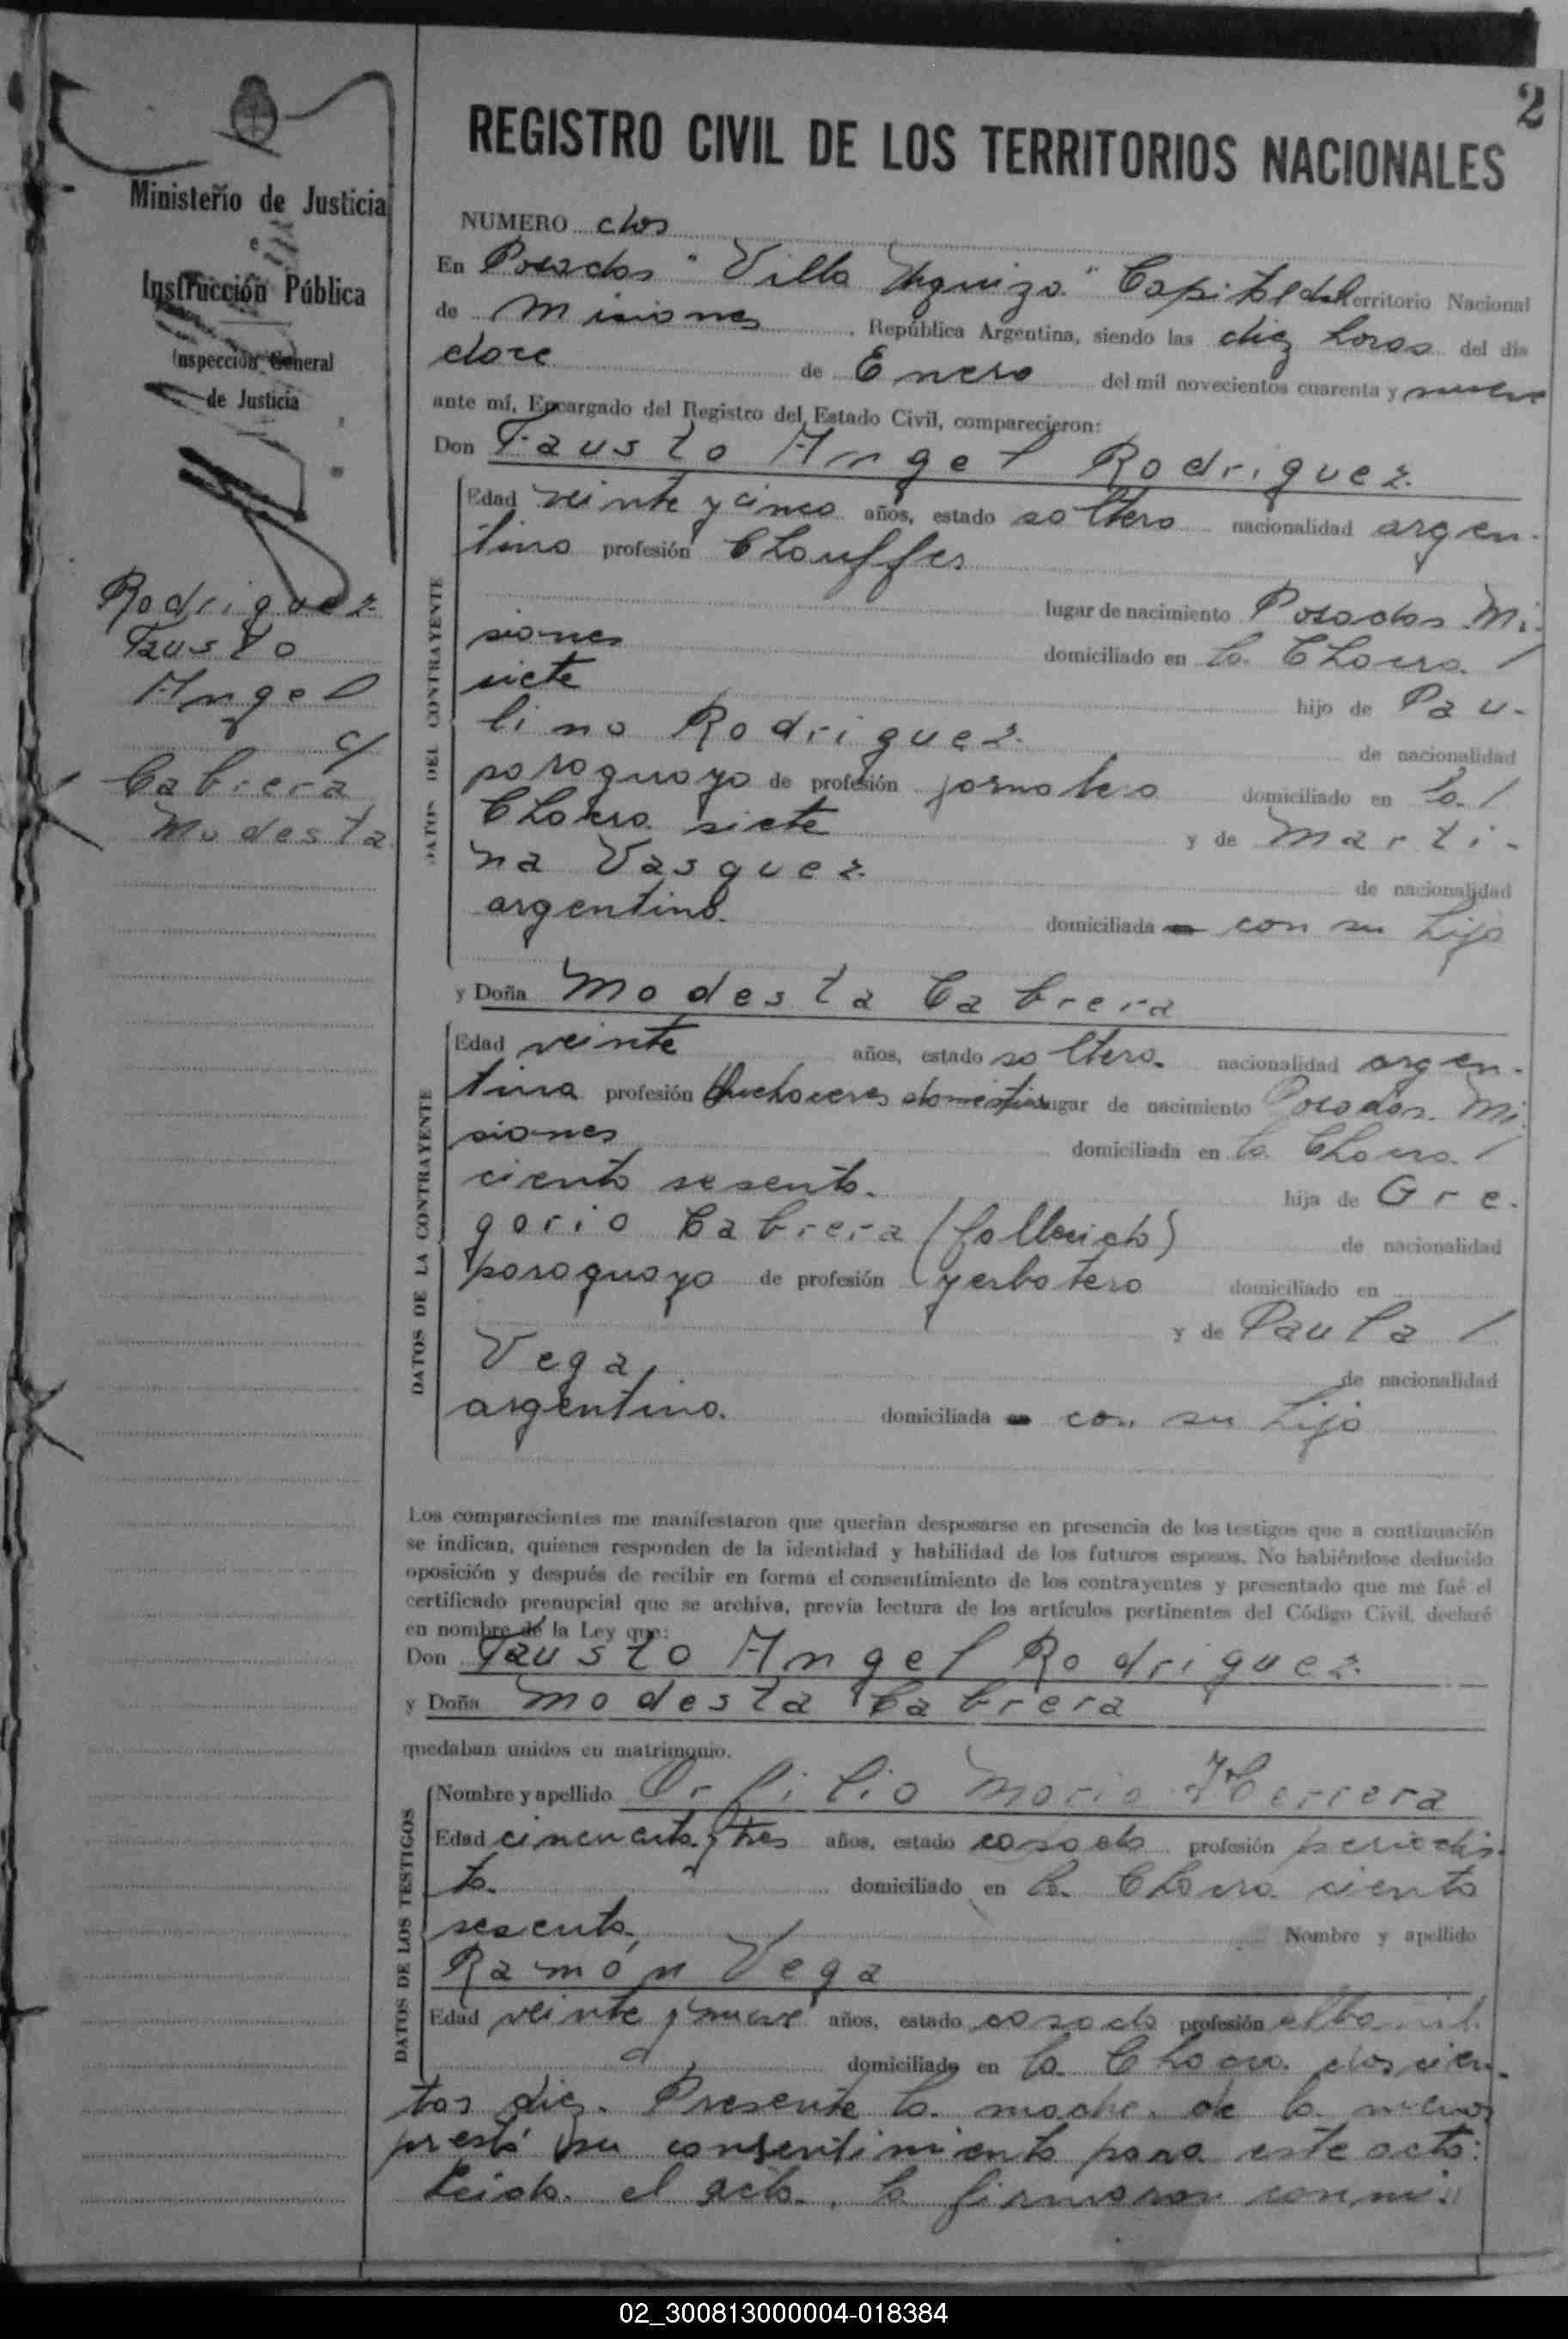 2
REGISTRO CIVIL DE LOS TERRITORIOS NACIONALES
Ministerio de Justicia
e
Instrucción Pública
Inspección General
de Justicia
Rodriguez
Fausto
Angel
c/
Cabrera
Modesta
NUMERO dos
En Posadas "Villa Urquiza" Capital del Territorio Nacional
de Misiones, República Argentina, siendo las diez horas del día
doce de Enero del mil novecientos cuarenta y nueve
ante mí, Encargado del Registro del Estado Civil, comparecieron:
Don Fausto Angel Rodriguez
DATOS DEL CONTRAYENTE
Edad veinte y cinco años, estado soltero nacionalidad argen-
tino profesión Chouffer
lugar de nacimiento Posadas Mi-
siones domiciliado en la Chacra /
siete hijo de Pau-
lino Rodriguez de nacionalidad
paraguayo de profesión jornalero domiciliado en la /
Chacra siete y de Marti-
na Vasquez de nacionalidad
argentina domiciliada con su hijo
y Doña Modesta Cabrera
DATOS DE LA CONTRAYENTE
Edad veinte años, estado soltera nacionalidad argen-
tina profesión Quehaceres domesticos lugar de nacimiento Posadas Mi
siones domiciliada en la Chacra /
ciento sesenta hija de Gre-
gorio Cabrera (fallecido) de nacionalidad
paraguayo de profesión yerbatero domiciliado en
y de Paula /
Vega, de nacionalidad
argentina domiciliada con su hija
Los comparecientes me manifestaron que querían desposarse en presencia de los testigos que a continuación
se indican, quienes responden de la identidad y habilidad de los futuros esposos. No habiéndose deducido
oposición y después de recibir en forma el consentimiento de los contrayentes y presentado que me fué el
certificado prenupcial que se archiva, previa lectura de los artículos pertinentes del Código Civil, declaré
en nombre de la Ley que:
Don Fausto Angel Rodriguez
y Doña Modesta Cabrera
quedaban unidos en matrimonio.
DATOS DE LOS TESTIGOS
Nombre y apellido Orfilio Mario Herrera
Edad cincuenta y tres años, estado casado profesión periodis-
ta domiciliado en la Chacra ciento
sesenta, Nombre y apellido
Ramón Vega
Edad veinte y nueve años, estado casado profesión albañil
domiciliado en la Chacra doscien-
tos diez. Presente la madre de la menor
prestó su consentimiento para este acto:
Leida el acta, la firmaron conmi
02_300813000004-018384